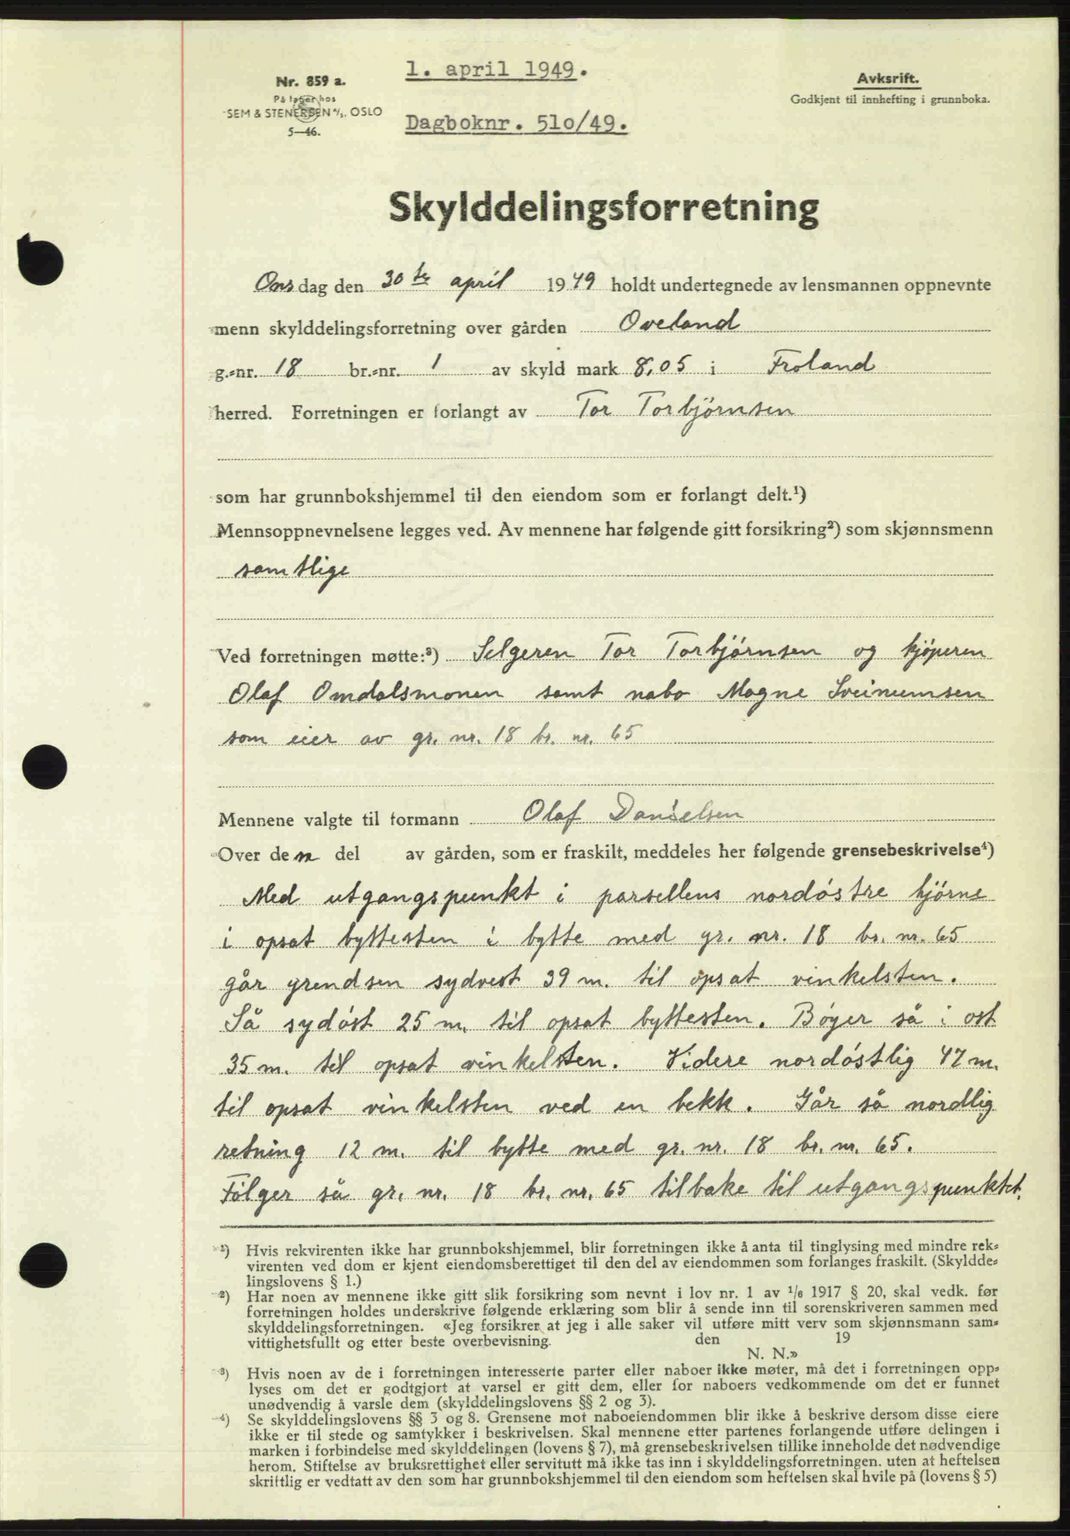 1. april 1949.
Nr. 859 a.
På lager hos
SEM & STENERSEN A/S, OSLO
5—46.
Avskrift.
Godkjent til innhefting i grunnboka.
Dagboknr. 510/49.
Skylddelingsforretning
Onsdag den 30te april 1949 holdt undertegnede av lensmannen oppnevnte
menn skylddelingsforretning over gården Oveland
g.-nr. 18 br.-nr. 1 av skyld mark 8,05 i Froland
herred. Forretningen er forlangt av Tor Torbjørnsen
som har grunnbokshjemmel til den eiendom som er forlangt delt.¹)
Mennsoppnevnelsene legges ved. Av mennene har følgende gitt forsikring²) som skjønnsmenn
samtlige
Ved forretningen møtte:³) Selgeren Tor Torbjørnsen og kjøperen
Olaf Omdalsmonen samt nabo Magne
som eier av gr. nr. 18 br. nr. 65
Mennene valgte til formann Olaf Danielsen
Over den del av gården, som er fraskilt, meddeles her følgende grensebeskrivelse⁴)
Med utgangspunkt i parsellens nordøstre hjørne
i opsat byttesten i bytte med gr. nr. 18 br. nr. 65
går grendsen sydvest 39 m. til opsat vinkelsten.
Så sydøst 25 m. til opsat byttesten. Bøyer så i øst
35 m. til opsat vinkelsten. Videre nordøstlig 47 m.
til opsat vinkelsten ved en bekk. Går så nordlig
retning 12 m. til bytte med gr. nr. 18 br. nr. 65.
Følger så gr. nr. 18 br. nr. 65 tilbake til utgangspunktet.
¹) Hvis rekvirenten ikke har grunnbokshjemmel, blir forretningen ikke å anta til tinglysing med mindre rek-
virenten ved dom er kjent eiendomsberettiget til den del av eiendommen som forlanges fraskilt. (Skyldde-
lingslovens § 1.)
²) Har noen av mennene ikke gitt slik forsikring som nevnt i lov nr. 1 av 1/6 1917 § 20, skal vedk. før
forretningen holdes underskrive følgende erklæring som blir å sende inn til sorenskriveren sammen med
skylddelingsforretningen. «Jeg forsikrer at jeg i alle saker vil utføre mitt verv som skjønnsmann sam-
vittighetsfullt og etter beste overbevisning. den 19
N. N.»
³) Hvis noen av de i forretningen interesserte parter eller naboer ikke møter, må det i forretningen opp-
lyses om det er godtgjort at varsel er gitt dem, eller for naboers vedkommende om det er funnet
unødvendig å varsle dem (skylddelingslovens §§ 2 og 3).
⁴) Se skylddelingslovens §§ 3 og 8. Grensene mot naboeiendommen blir ikke å beskrive dersom disse eiere
ikke er til stede og samtykker i beskrivelsen. Skal mennene etter partenes forlangende utføre delingen i
marken i forbindelse med skylddelingen (lovens § 7), må grensebeskrivelsen tillike inneholde det nødvendige
herom. Stiftelse av bruksrettighet eller servitutt må ikke tas inn i skylddelingsforretningen, uten at heftelsen
skriftlig er vedtatt av den som har grunnbokshjemmel til den eiendom som heftelsen skal hvile på (lovens § 5)